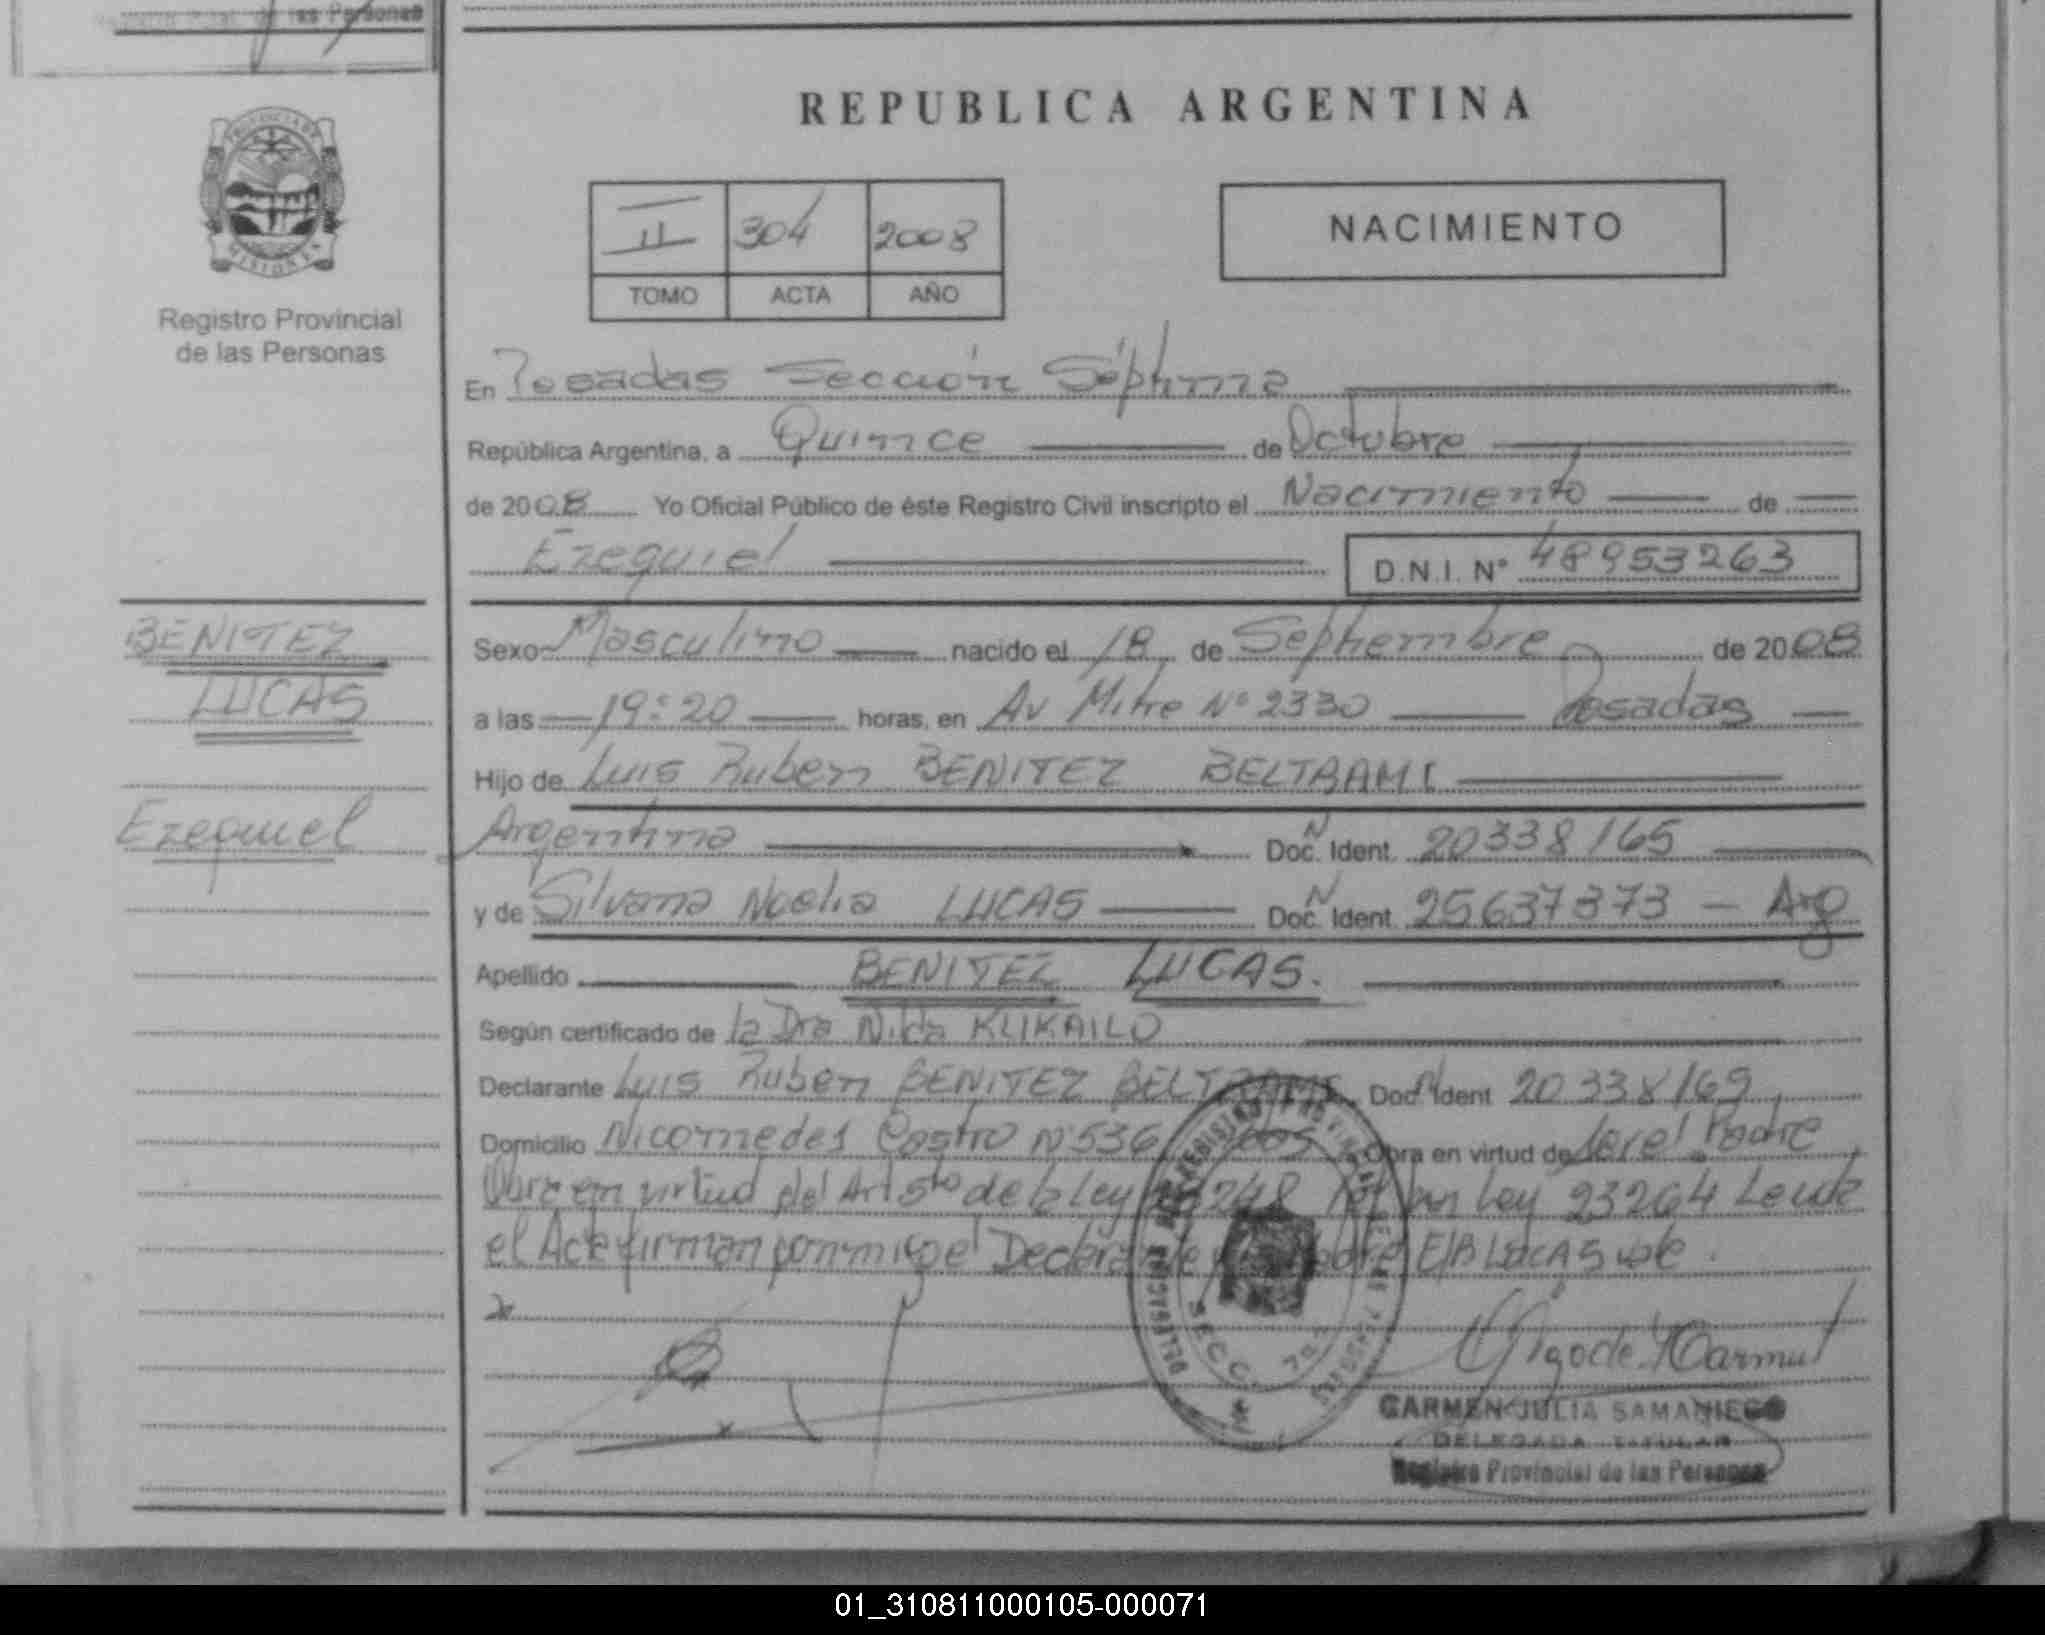 de las Personas
REPUBLICA ARGENTINA
PROVINCIA DE
MISIONES
II 304 2008
TOMO ACTA AÑO
NACIMIENTO
Registro Provincial
de las Personas
En Posadas Sección Séptima
República Argentina, a Quince de Octubre
de 2008 Yo Oficial Público de éste Registro Civil inscripto el Nacimiento de
Ezequiel D.N.I. N° 48953263
BENITEZ
LUCAS
Ezequiel
Sexo Masculino nacido el 18 de Septiembre de 2008
a las 19:20 horas, en Av Mitre N° 2330 Posadas
Hijo de Luis Ruben BENITEZ BELTRAMI
Argentina Doc. N Ident. 20338165
y de Silvana Noelia LUCAS Doc. N Ident. 25637373 - Arg
Apellido BENITEZ LUCAS.
Según certificado de la Dra Nilda KLIKAILO
Declarante Luis Ruben BENITEZ BELTRAMI Doc. N Ident 20338165
Domicilio Nicomedes Castro N° 536 Obra en virtud de ser el Padre
Obra en virtud del Art 5to de la Ley 18248 Ley 23264 Leida
el Acta firman conmigo el Declarante E/B LUCAS vale.
DELEGACION REGISTRO PROVINCIAL DE LAS PERSONAS
SECC. 7a
CARMEN JULIA SAMANIEGO
DELEGADA TITULAR
Registro Provincial de las Personas
01_310811000105-000071